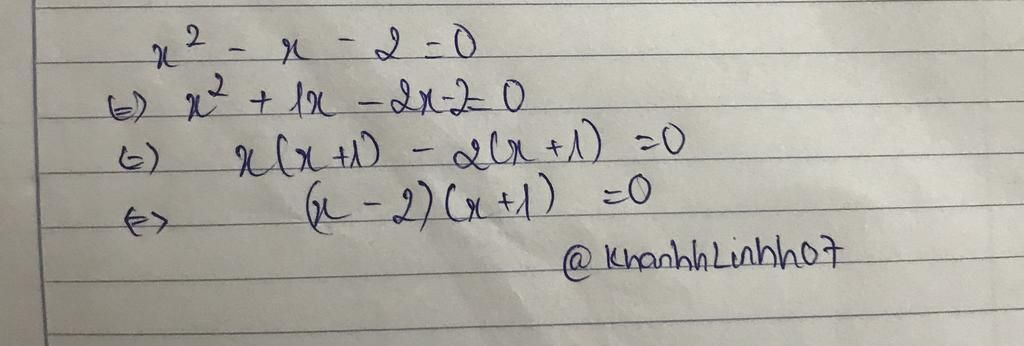 x² - x - 2 = 0
(=) x² + 1x - 2x - 2 = 0
(=) x(x+1) - 2(x+1) = 0
<=> (x - 2)(x+1) = 0
@KhanhhLinhh07